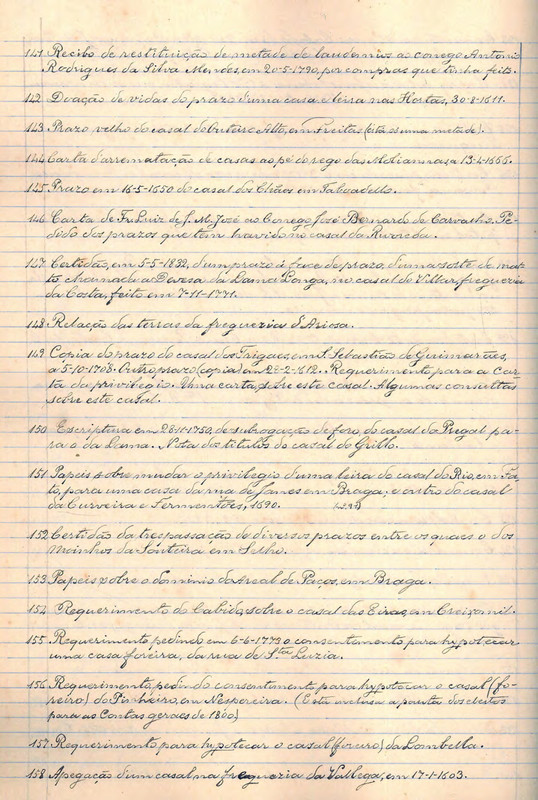 141 Recibo de restituição de metade de laudemios ao conego Antonio
Rodrigues da Silva Mendes, em 20-5-1790, por compras que tinha feito.
142 Doação de vidas do prazo d'uma casa e leira nas Hortas, 30-8-1611.
143 Prazo velho do casal do Outeiro Alto, em Freitas (está só uma metade).
144 Carta d'arrematação de casas ao pé do rego das Molianas a 13-4-1666.
145 Prazo em 16-5-1650 do casal dos Chãos em Taboadello.
146 Carta de Fr. Luiz de S. M. José ao Conego José Bernardo de Carvalho. Pe-
dido dos prazos que tem havido no casal da
147 Certidão, em 5-5-1832, d'um prazo é face do prazo, d'uma sorte de mat-
to, chamada a Devesa da Lama Longa, no casal de Villar, freguezia
da Costa, feito em 7-11-1771.
148 Relação das terras da freguezia d'Ariosa.
149 Copia do prazo do casal dos Trigaes, em S. Sebastião de Guimarães,
a 5-10-1708. Outro prazo (copia) em 22-2-1612. Requerimento para a car-
ta de privilegio. Uma carta, sobre este casal. Algumas consultas
sobre este casal.
150 Escriptura em 28-11-1750, de subrogação de foro, do casal do Regal pa-
ra o da Lama. Nota dos titulos do casal do Grillo.
151 Papeis sobre mudar o privilegio d'uma leira do casal do Rio, em Fa-
to, para uma casa da rua de Janes em Braga; e outro do casal
da Curveira e Fermentões, 1690.
152 Certidão da trespassação de diversos prazos entre os quaes o dos
Moinhos da Ponteira em Selho.
153 Papeis sobre o dominio do Areal de Paços, em Braga.
154 Requerimento do Cabido, sobre o casal das Eiras, em Creixomil.
155 Requerimento pedindo em 6-6-1773 o consentimento para hypotecar
uma casa foreira, da rua de Sta Luzia.
156 Requerimento, pedindo consentimento para hypotecar o casal (fo-
reiro) do Pinheiro, em Nespereira. (Está inclusa a pauta dos eleitos
para as Contas geraes de 1800)
157 Requerimento para hypotecar o casal (foreiro) da Lombella.
158 Apegação d'um casal na freguezia da Vallega, em 17-1-1603.